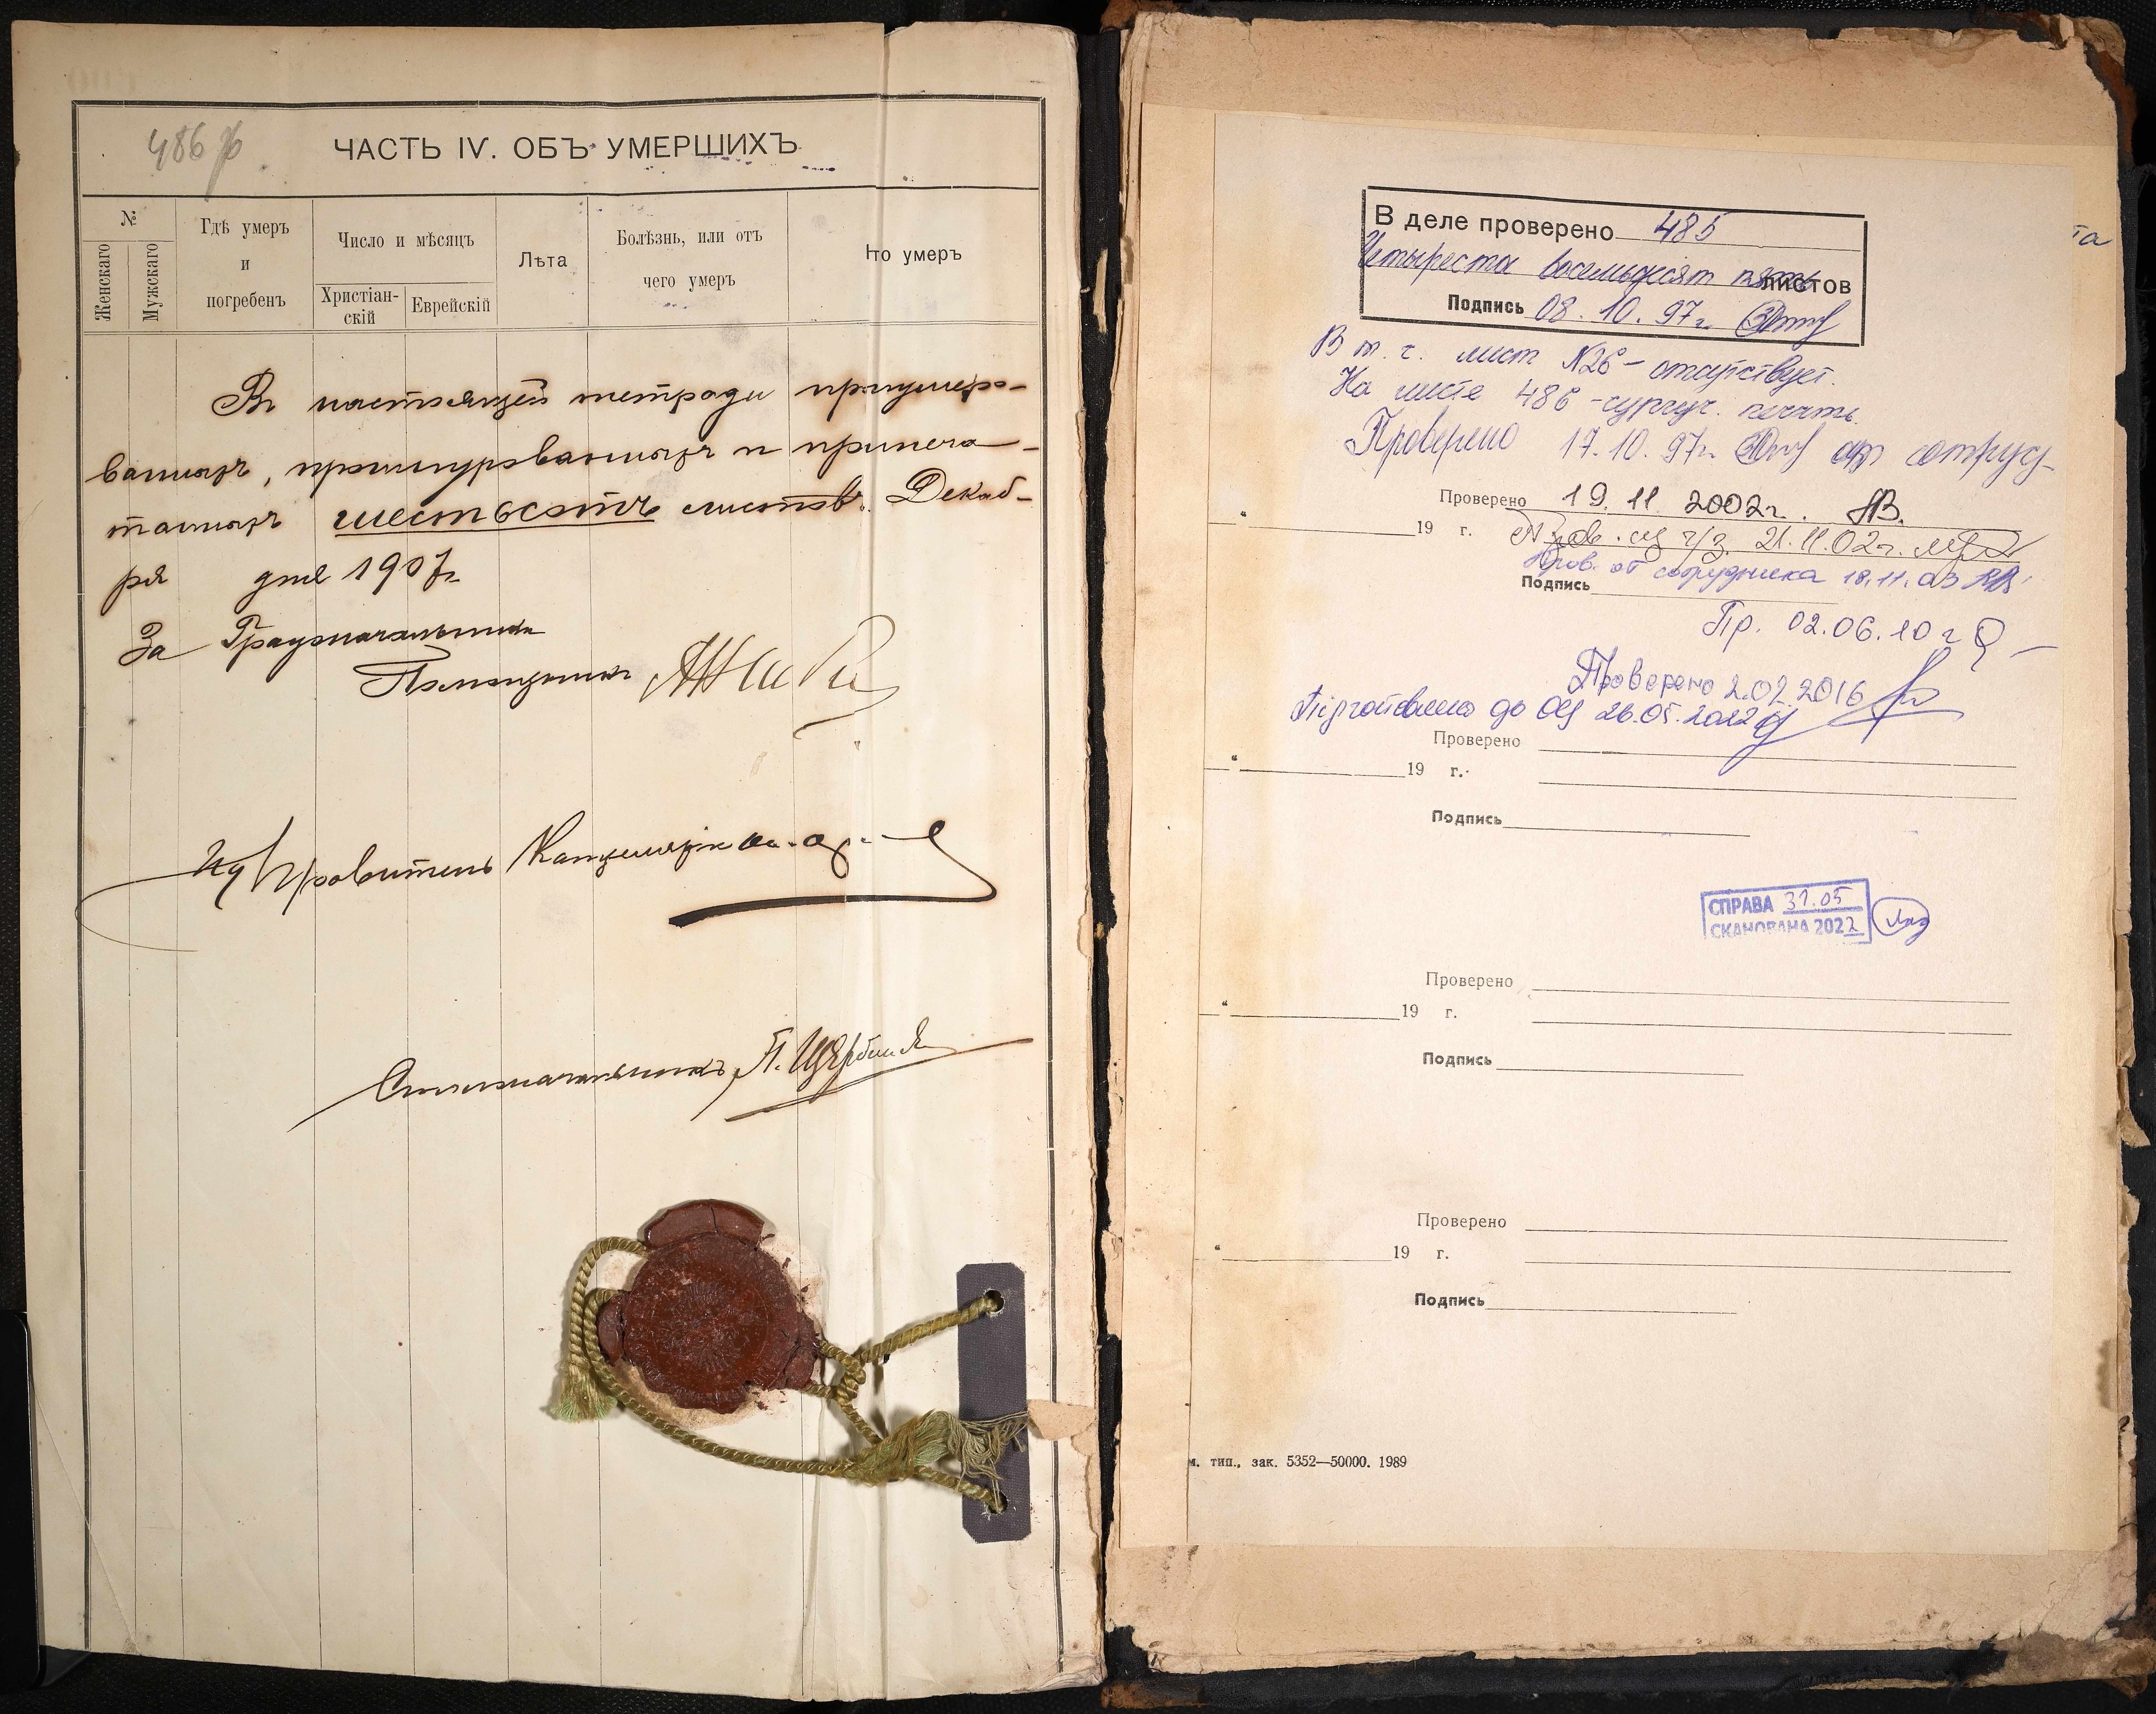 486
ЧАСТЬ IV. ОБЪ УМЕРШИХЪ
№
Женскаго
Мужскаго
Гдѣ умеръ
и
погребенъ
Число и мѣсяцъ
Христіан-
скій
Еврейскій
Лѣта
Болѣзнь, или отъ
чего умеръ
то умеръ
Въ настоящей тетради пронумеро-
ванныхъ, прошнурованныхъ и припеча-
танныхъ шестьсотъ листовъ. Декаб-
ря дня 1907 г.
За Градоначальника
Помощникъ
Правитель Канцеляріи
Столоначальникъ П. Щербина
В деле проверено 485
Четыреста восемьдесят пять листов
Подпись 08.10.97г.
В т. ч. лист №26 - отсутствует.
На листе 486 - сургуч. печать.
Проверено 17.10.97г. от сотруд
Проверено 19.11.2002г. ЯВ.
19 г. 21.11.02г.
Пров. от сотрудника 18.11.03
Подпись
Пр. 02.06.10 г
Проверено 2.02.2016
Підготовлено до ОЦ 26.05.2022
Проверено
19 г.
Подпись
СПРАВА 31.05
СКАНОВАНА 2022
Проверено
19 г.
Подпись
Проверено
19 г.
Подпись
м. тип., зак. 5352—50000. 1989
та